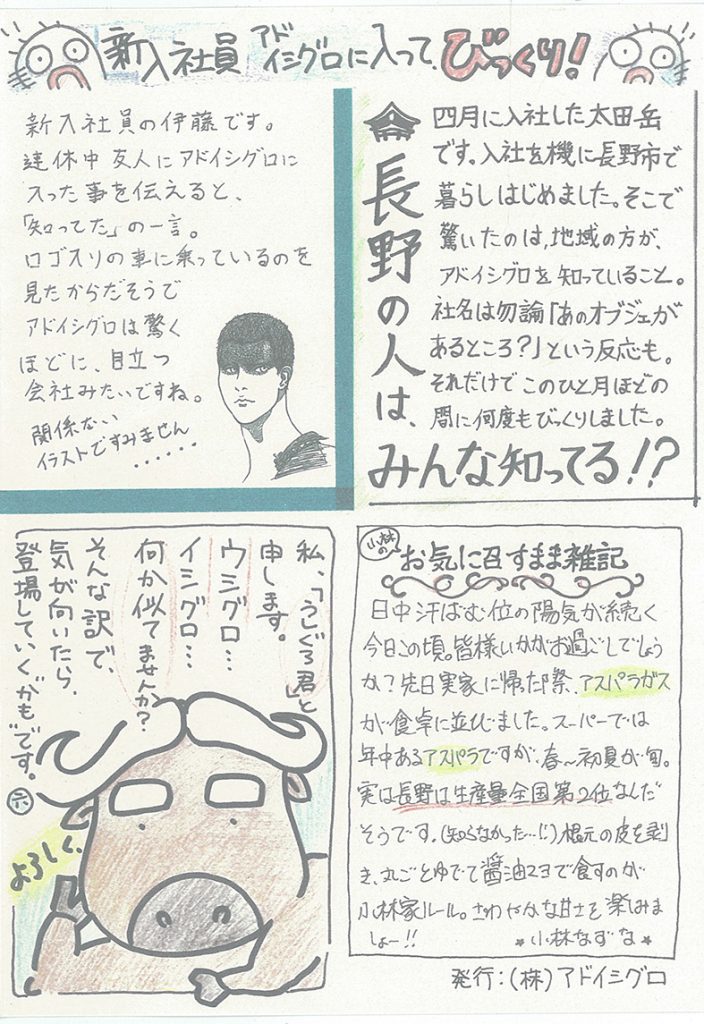 新入社員 アドイシグロに入って、びっくり！
四月に入社した太田岳
です。入社を機に長野市で
暮らしはじめました。そこで
驚いたのは、地域の方が、
アドイシグロを知っていること。
社名は勿論「あのオブジェが
あるところ？」という反応も。
それだけでこのひと月ほどの
間に何度もびっくりしました。
長野の人は、
みんな知ってる！？
新入社員の伊藤です。
連休中友人にアドイシグロに
入った事を伝えると、
「知ってた」の一言。
ロゴ入りの車に乗っているのを
見たからだそうで
アドイシグロは驚く
ほどに、目立つ
会社みたいですね。
関係ない
イラストですみません
・・・・・・
小林の
お気に召すまま雑記
日中汗ばむ位の陽気が続く
今日この頃。皆様いかがお過ごしでしょう
か？先日実家に帰った際、アスパラガス
が食卓に並びました。スーパーでは
年中あるアスパラですが、春〜初夏が旬。
実は長野は生産量全国第2位なんだ
そうです。(知らなかった…!!)根元の皮を剥
き、丸ごとゆでて醤油マヨで食すのが
小林家ルール。さわやかな甘さを楽しみま
しょー!!
★小林なずな★
私、「うしぐろ君」と
申します。
ウシグロ…
イシグロ…
何か似てませんか？
そんな訳で、
気が向いたら、
登場していく“かも”です。
六
よろしく、
発行：(株)アドイシグロ